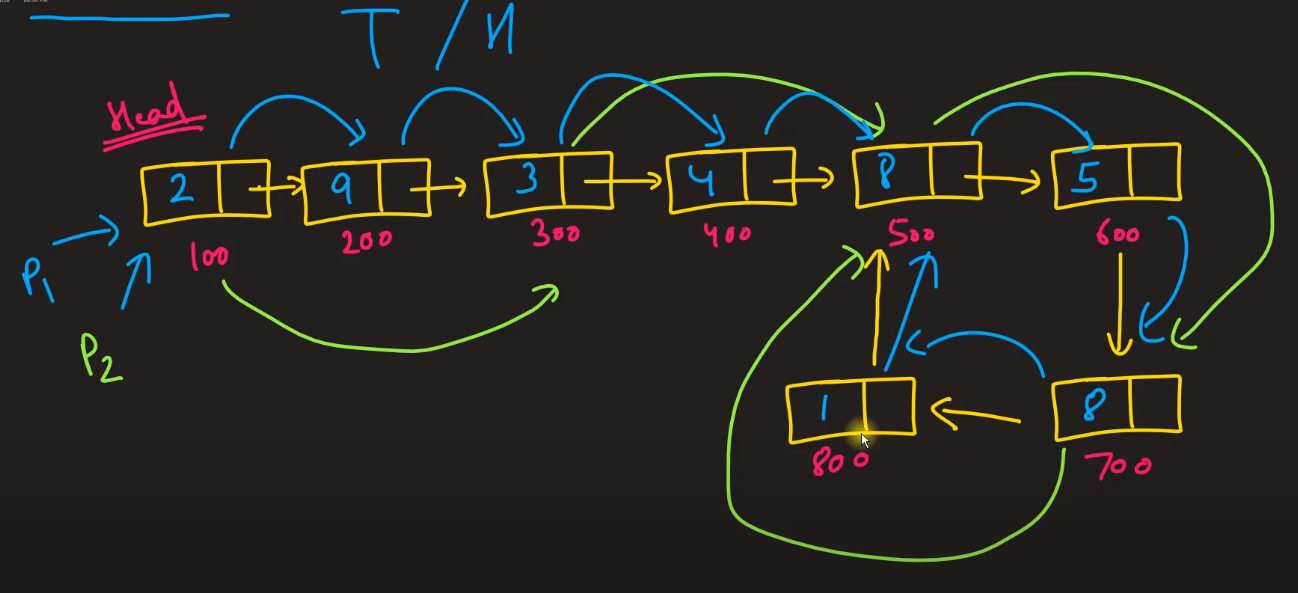 T / H
Head
2 9 3 4 8 5
100 200 300 400 500 600
P1
P2
1 8
800 700